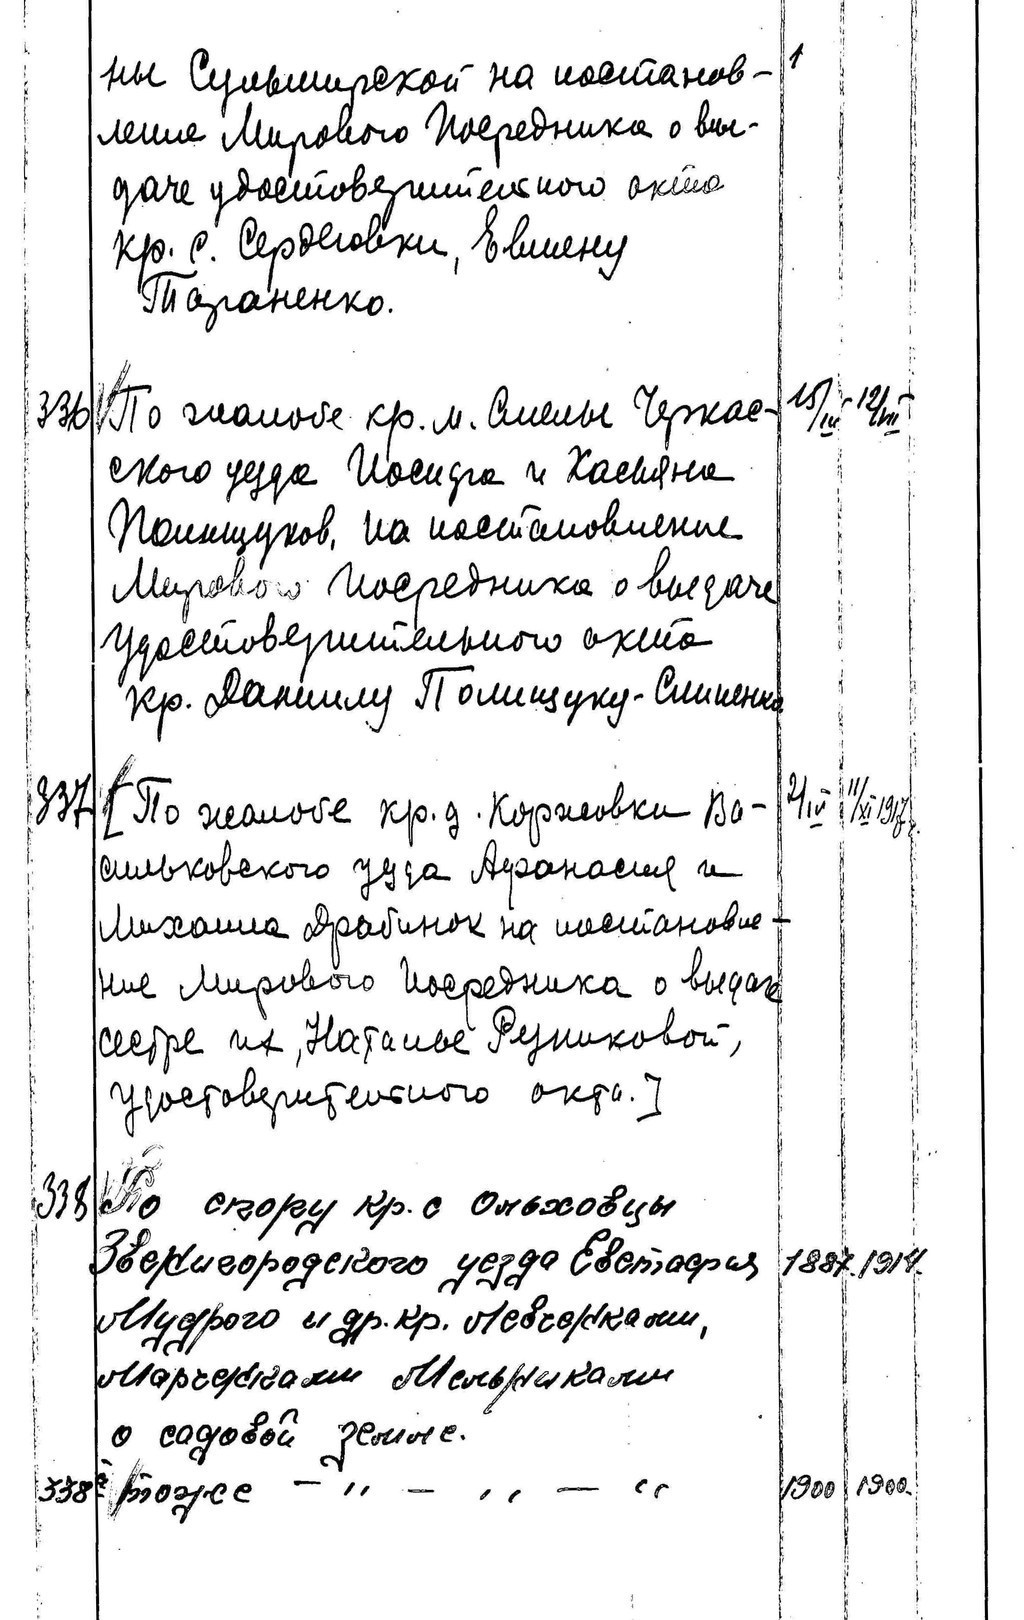 ны Сульжирской на постанов-
ление Мирового Посредника о вы-
даче удостоверительного акта
кр. с. Сердеговки, Евмену
Тараненко.
336 По жалобе кр. м. Смелы Черкас- 15/IV 12/VIII
ского уезда Иосифа и Касьяна
Полищуков, на постановление
Мирового Посредника о выдаче
удостоверительного акта
кр. Даниилу Полищуку-Слипенко
337 [По жалобе кр. д. Коржовки Ва- 2/IV 11/XI 1917 г.
сильковского уезда Афанасия и
Михаила Драбинок на постановле-
ние Мирового Посредника о выдаче
сестре их, Наталье Резниковой,
удостоверительного акта.]
338 По спору кр. с Ольховцы
Звенигородского уезда Евстафия 1887. 1914.
Мудрого и др. кр. Левченками,
Марченками Мельниками
о садовой земле.
338а тоже — ,, — ,, — ,, 1900 1900.